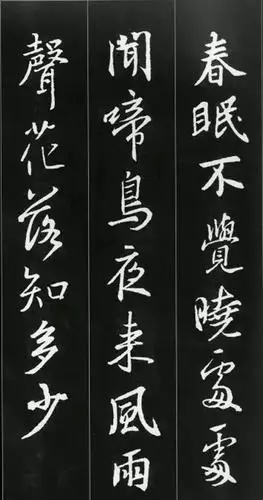 春眠不覺曉處處
聞啼鳥夜来風雨
聲花落知多少